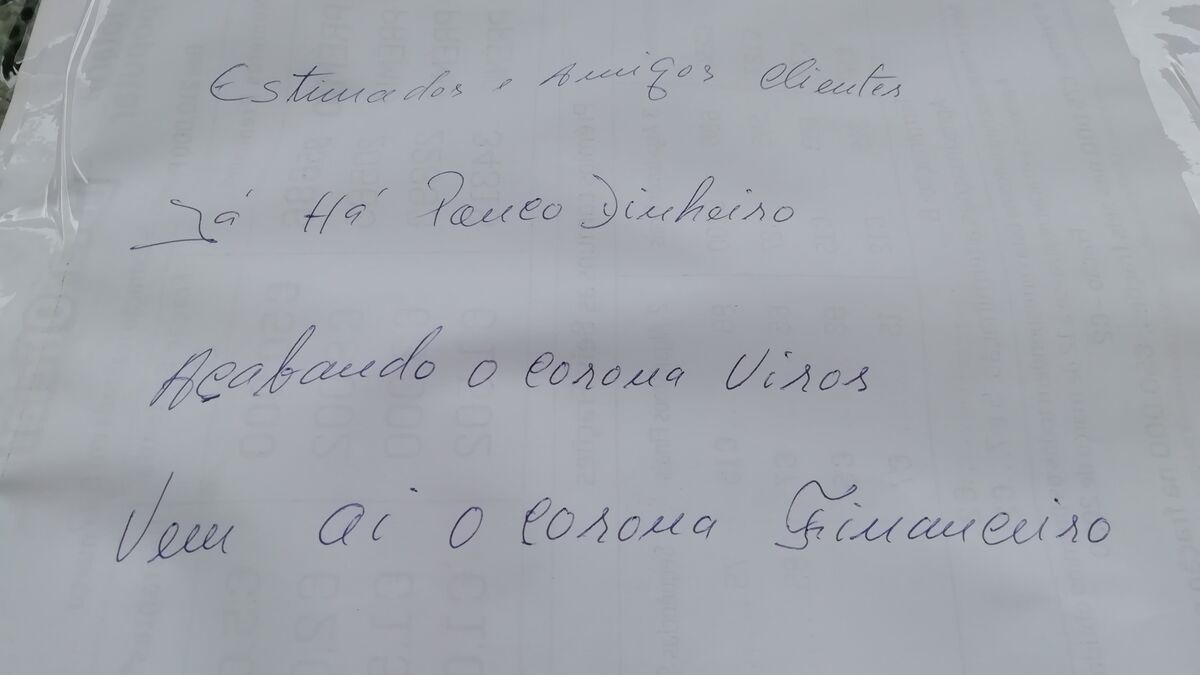 Estimados e Amigos Clientes
Já Há Pouco Dinheiro
Acabando o corona Viros
Vem ai o corona Financeiro